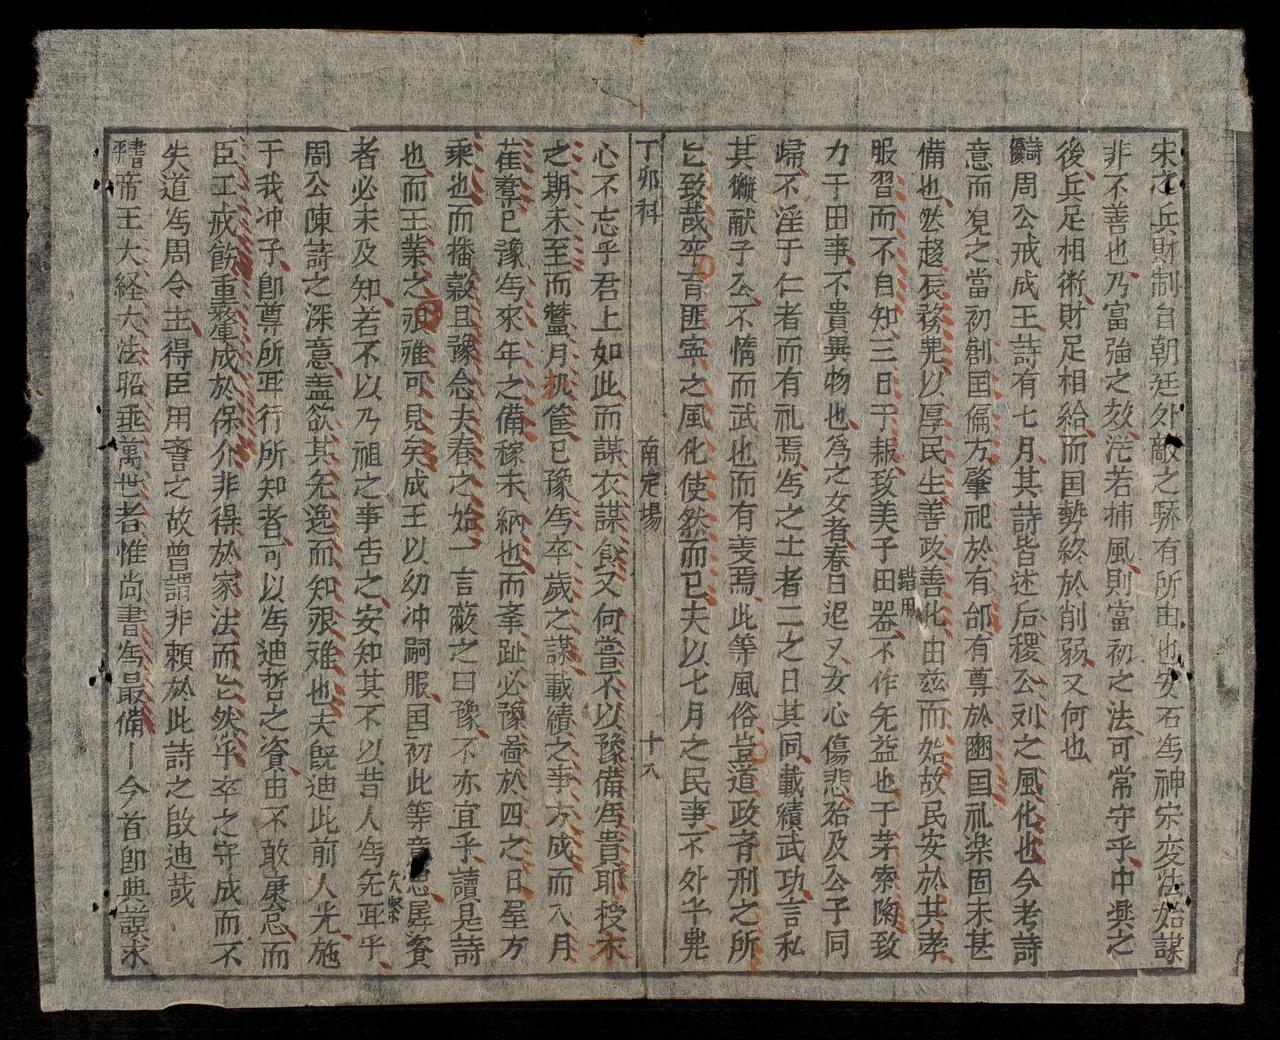 宋之兵財制自朝廷外敵之驕有所由也安石為神宗变法始謀
非不善也乃富強之効茫若捕風則當初之法可常守乎中奥之
後兵足相衛財足相給而囯势終於削弱又何也
詩義周公戒成王詩有七月其詩皆述后稷公刘之風化也今考詩
意而覌之當初創囯偏方肇祀於有邰有尊於豳囯礼楽固未甚
備也然趍辰務農以厚民生善政善化由兹而始故民安於其孝
服習而不自知三日于耜致美于田器不作无益也于茅索陶致
力于田事不貴異物也為之女者春日迟又女心傷悲殆及公子同
歸不淫于仁者而有礼焉為之士者二之日其同載績武功言私
其豵献于公不惰而武也而有义焉此等風俗豈道政斉刑之所
㠯致哉卒育匪寧之風化使然而已夫以七月之民事不外乎農
丁卯科 南定場 十八
心不忘乎君上如此而謀衣謀食又何嘗不以豫備為貴耶授衣
之期未至而蠶月机筐已豫為卒歲之謀載績之事方成而八月
萑葦已豫為來年之備稼未納也而举趾必豫啚於四之日屋方
乘也而播穀且豫念夫春之始一言蔽之曰豫不亦宜乎讀是詩
也而王業之艰难可見矣成王以幼冲嗣服囯初此等
者必未及知若不以乃祖之事告之安知其不以昔人為无𠀋乎
周公陳詩之深意盖欲其无逸而知艰难也夫既迪此前人光施
于我冲子即尊所𠀋行所知者可以為迪哲之資由不敢康忽而
臣工戒飭重釐成於保介非得於家法而㠯然乎卒之守成而不
失道為周令主得臣用耆之故曾謂非頼於此詩之啟迪哉
書帝王大経大法昭垂萬世者惟尚書為最備丨今首即典謨求